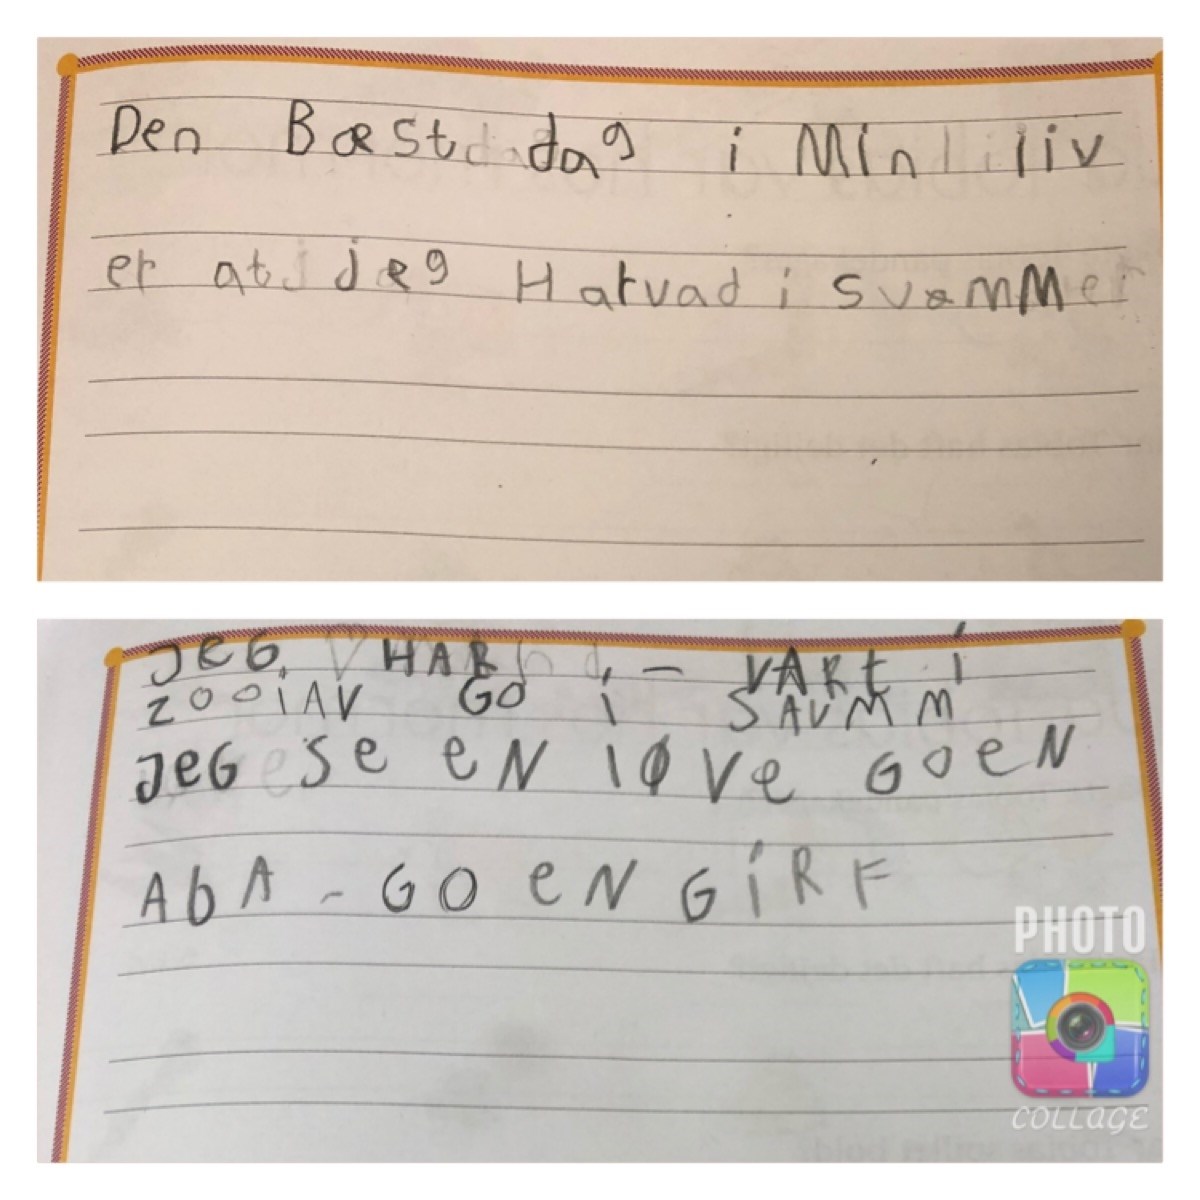 Den Bæst dag i Min liv
er at jeg Harvad i svømMer
JeG HAR - VARt i
zooiAV GO i SAVMM
JeG Se eN løVe GO eN
AbA - GO eN GiRF
PHOTO
COLLAGE